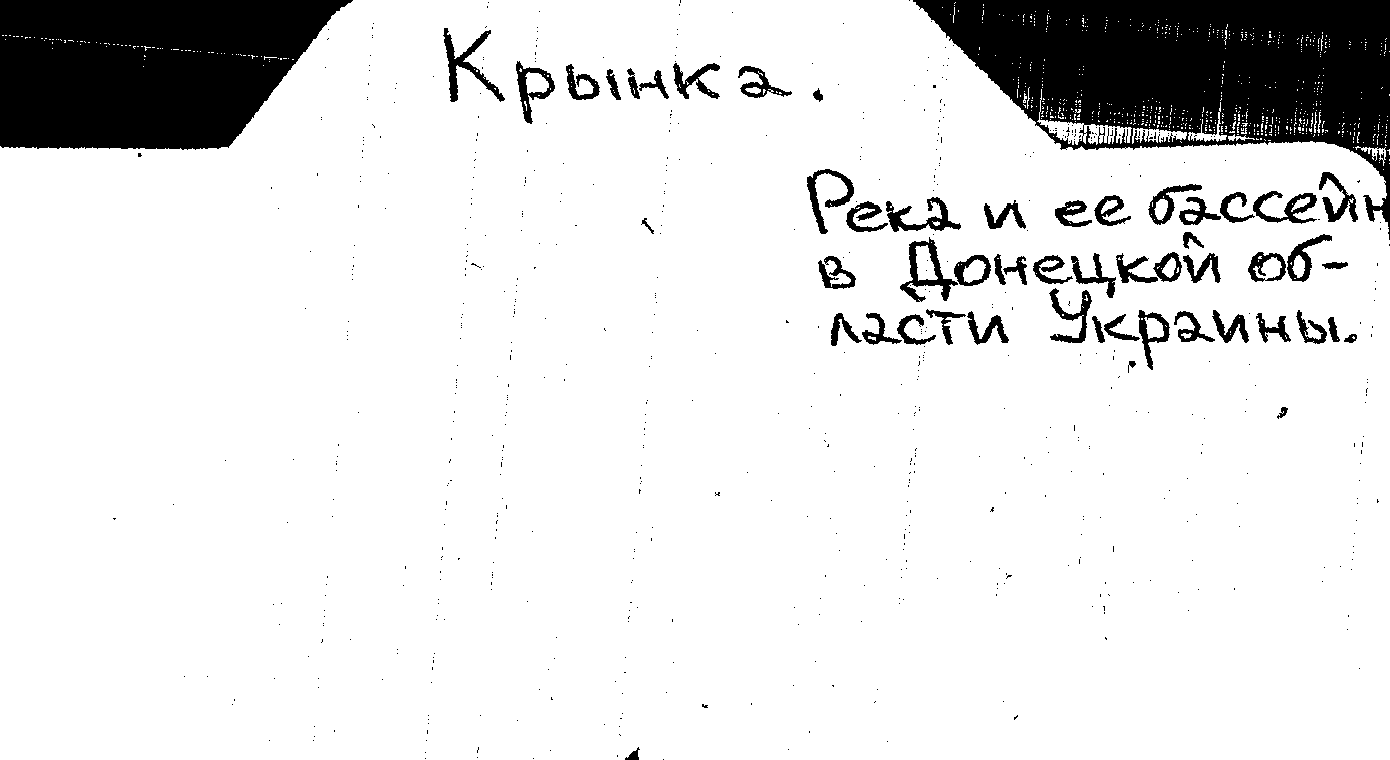 Крынка.
Река и ее бассейн
в Донецкой об-
ласти Украины.